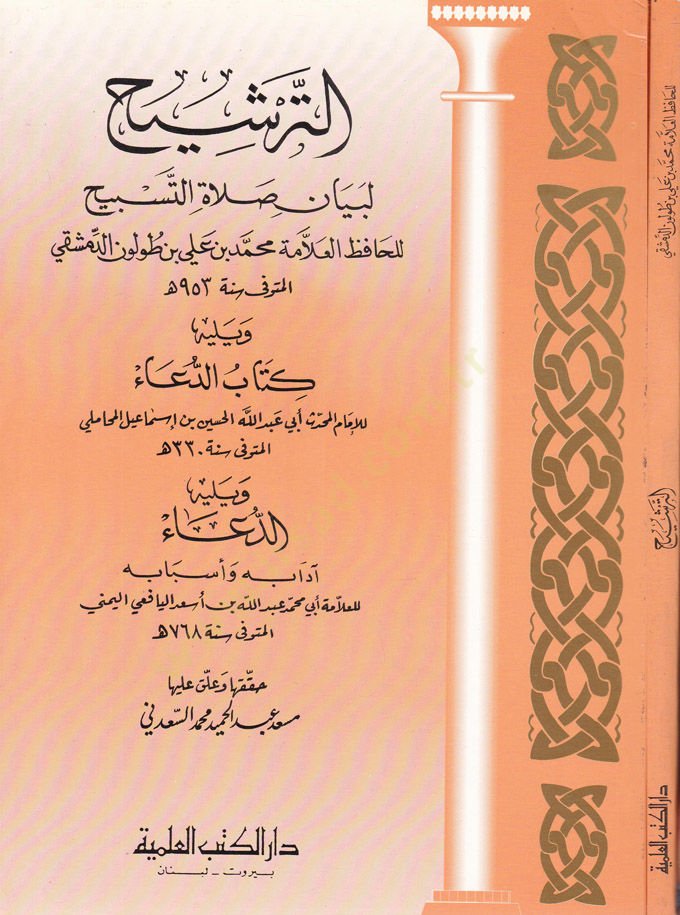 الترشيح
لبيان صلاة التسبيح
للحافظ العلامة محمد بن علي بن طولون الدمشقي
المتوفى سنة ٩٥٣هـ
ويليه
كتاب الدعاء
للإمام المحدث أبي عبد الله الحسين بن إسماعيل المحاملي
المتوفى سنة ٣٣٠هـ
ويليه
الدعاء
آدابه وأسبابه
للعلامة أبي محمد عبد الله بن أسعد اليافعي اليمني
المتوفى سنة ٧٦٨هـ
حققها وعلق عليها
مسعد عبد الحميد محمد السعدني
دار الكتب العلمية
بيروت - لبنان
للحافظ العلامة محمد بن علي بن طولون الدمشقي
الترشيح
دار الكتب العلمية